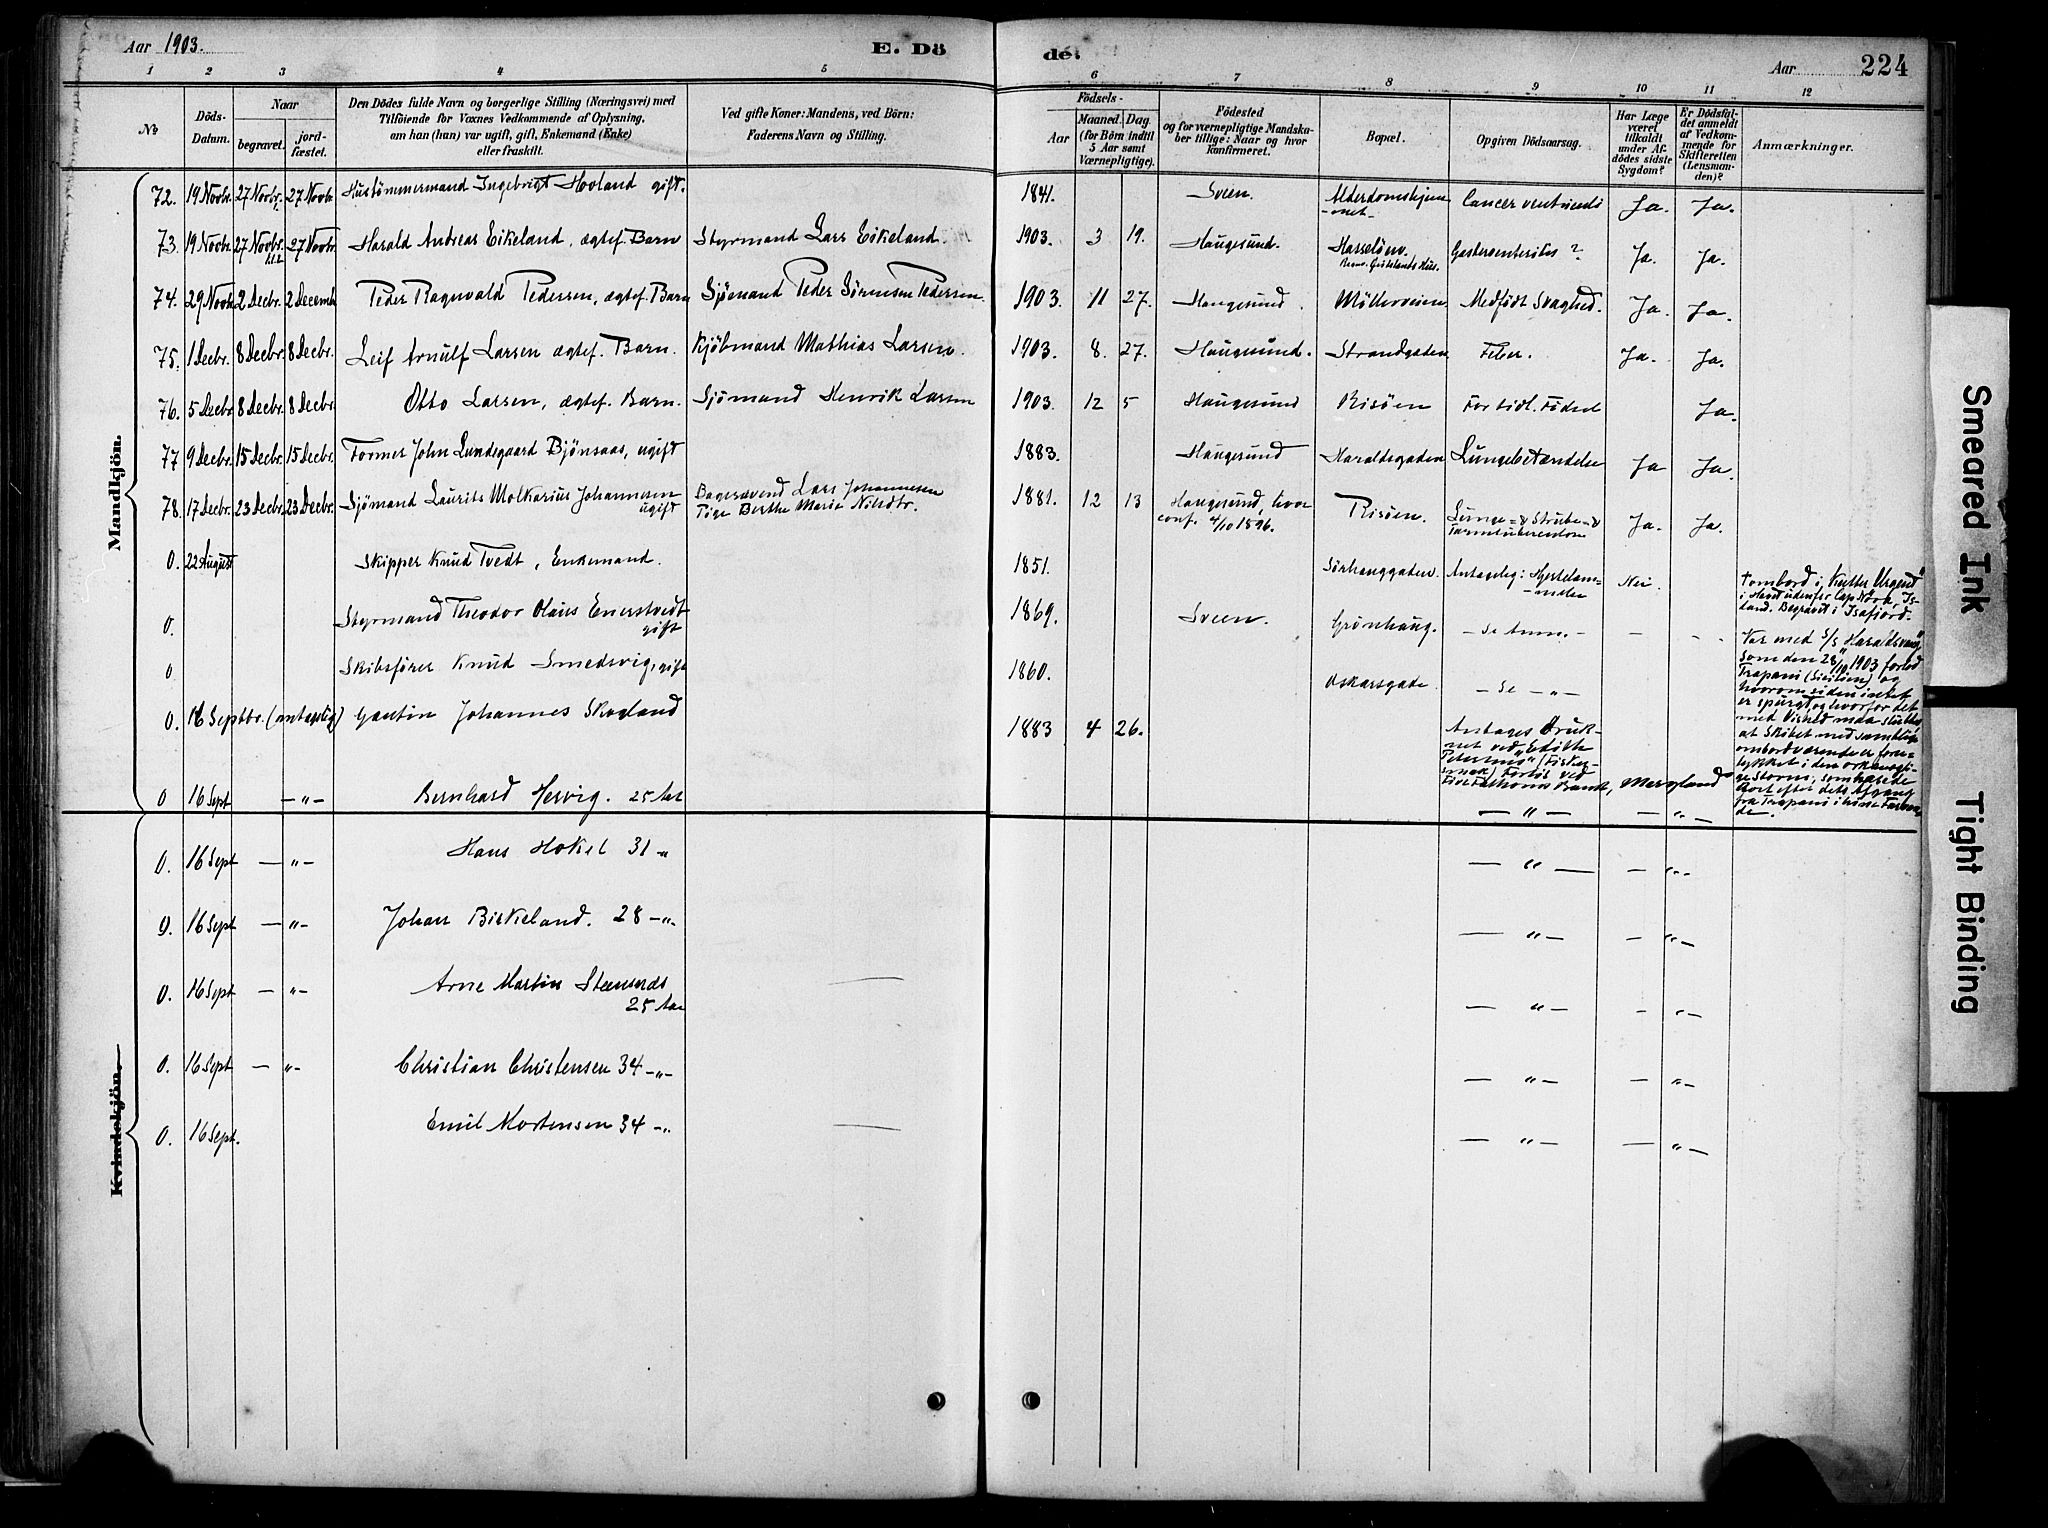 Aar 1903.
E. Dö
de.
Aar
224
1 2 3 4 5 6 7 8 9 10 11 12
No
Döds-Datum.
Naar
begravet.
jord-fæstet.
Den Dödes fulde Navn og borgerlige Stilling (Næringsvei) med
Tilföiende for Voxnes Vedkommende af Oplysning,
om han (hun) var ugift, gift, Enkemand (Enke)
eller fraskilt.
Ved gifte Koner: Mandens, ved Börn:
Faderens Navn og Stilling.
Födsels-
Aar
Maaned.
Dag
(for Börn indtil
5 Aar samt
Værnepligtige).
Födested
og for værnepligtige Mandska-
ber tillige: Naar og hvor
konfirmeret.
Bopæl.
Opgiven Dödsaarsag.
Har Læge
været
tilkaldt
under Af-
dödes sidste
Sygdom?
Er Dödsfal-
det anmeldt
af Vedkom-
mende for
Skifteretten
(Lensman-
den)?
Anmærkninger.
Mandkjön.
72. 19 Novbr. 27 Novbr. 27 Novbr Hustømmermand Ingebrigt Hovland gift. 1841. Sveen. Alderdomshjem-
-met- Cancer ventriculi Ja. Ja.
73. 19 Novbr. 27 Novbr. 27 Novbr Harald Andreas Eikeland, ægtef. Barn Styrmand Lars Eikeland. 1903. 3 19. Haugesund. Hasseløen. Gasteroenteritis ? Ja. Ja.
74. 29 Novbr 2 Decbr. 2 Decemb Peder Ragnvald Pedersen, ægtef. Barn Sjömand Peder Sörensen Pedersen. 1903. 11 27. Haugesund. Möllerveien Medfödt Svaghed. Ja. Ja.
75. 1 Decbr. 8 Decbr. 8 Decbr. Leif Arnulf Larsen ægtef. Barn. Kjöbmand Mathias Larsen. 1903. 8. 27. Haugesund. Strandgaden Feber. Ja. Ja.
76. 5 Decbr 8 Decbr. 8 Decbr. Otto Larsen, ægtef. Barn. Sjömand Henrik Larsen 1903. 12 5 Haugesund Risöen For tidl. Födsel Ja.
77 9 Decbr. 15 Decbr. 15 Decbr. Former John Lundegaard Bjönsaas, ugift 1883. Haugesund Haraldsgaden Lungebetændelse Ja Ja.
78. 17 Decbr. 23 Decbr. 23 Decbr. Sjömand Laurits Molkarius Johannesen
ugift Lars Johannesen
Pige Berthe Maria Nilsdtr. 1881. 12 13 Haugesund, hvor
conf. 4/10 1896. Risöen. Lunge- & Strube- &
Tarmtuberculose Ja. Ja.
0. 22 August Skipper Knud Tvedt, Enkemand. 1851. Sörhauggaden. Antagelig: Hjertelam-
-melse Nei. Ombord i Kutter
i Havet udenfor Cap Nord, Is-
land. Begravet i Isafjord.
0. Styrmand Theodor Olaus Enerstvedt
gift 1869. Sveen. Grönhaug. – Se Anm. – – - Var med S/S "Haraldsvang"
0 Skibsförer Knud Smedsvig, gift 1860. Oskarsgade. – Se – „ – som den 28/11 1903 forlod
Trapani (Sicilien) og
hvorom siden intet
er spurgt, og hvorfor det
med Vished maa sluttes
at Skibet med samtlige
ombordværende er for-
lykket i den orkanagti-
ge Storm, som rasede
kort efter dets Afgang
fra Trapani i hine Farvan-
de.
0. 16 Septbr. (antagelig) Gautin Johannes Skogland 1883 4 26. Antages druk-
net ved
0 16 Sept – „ – Bernhard Hervig. 25 Aar – „ – – „ –
0. 16 Sept – „ – Hans Hokel 31 „ – „ – – „ –
0. 16 Sept – „ – Johan Birkeland. 28 – „ – – „ – – „ –
0. 16 Sept – „ – Arne Martin Stensnæs
25 Aar – „ – – „ –
0. 16 Sept – „ – Christian Christensen 34 – „ – – „ – – „ –
0. 16 Sept. Emil Mortensen 34 – „ – „ – – „ –
Kvindekjön.
Smeared Ink
Tight Binding